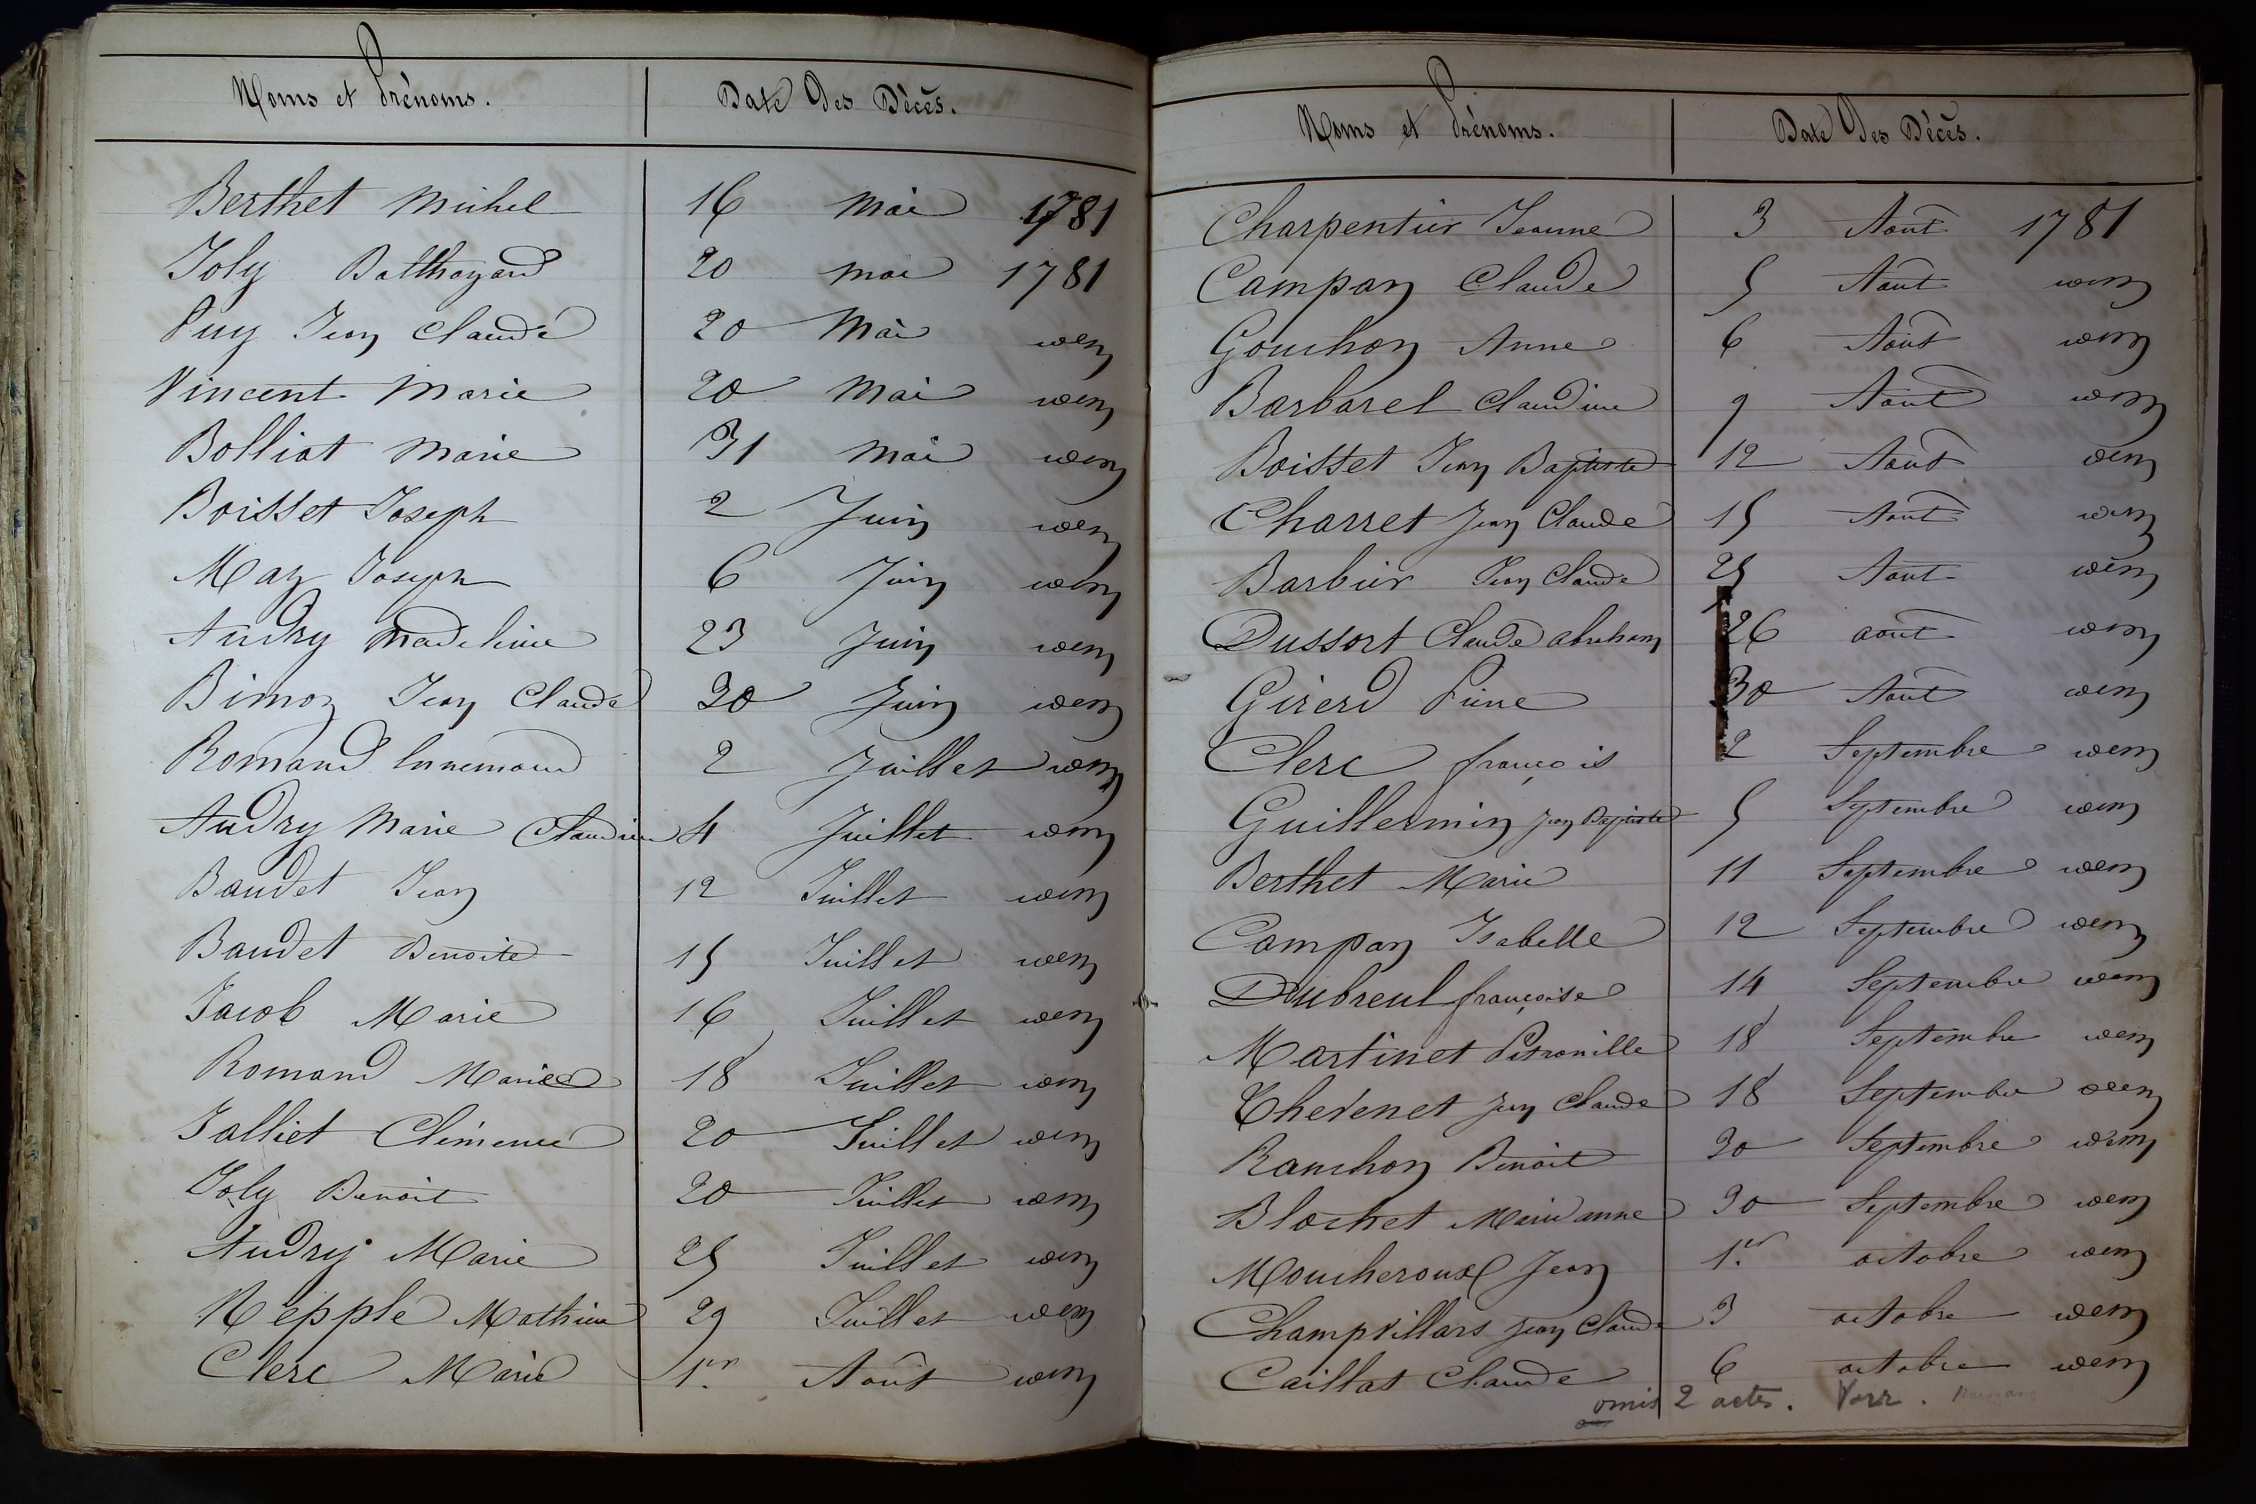 Noms et Prénoms. Date Des Décès.
Berthet Michel 16 Mai 1781
Joly Balthazard 20 mai 1781
Puy Jean Claude 20 Mai idem
Vincent Marie 20 Mai idem
Bolliat Marie 31 Mai idem
Boisset Joseph 2 Juin idem
May Joseph 6 Juin idem
Audry Madeleine 23 Juin idem
Bimoz Jean Claude 30 Juin idem
Romand Ennemond 2 Juillet idem
Audry Marie Claudine 4 Juillet idem
Baudet Jean 12 Juillet idem
Baudet Benoite 15 Juillet idem
Jacob Marie 16 Juillet idem
Romand Marie 18 Juillet idem
Jalliet Clémence 20 Juillet idem
Joly Benoit 20 Juillet idem
Audry Marie 25 Juillet idem
Nepple Mathieu 29 Juillet idem
Clerc Marie 1er. Août idem
Noms et Prénoms. Date Des Décès.
Charpentier Jeanne 3 Aout 1781
Campan Claude 5 Aout idem
Gouchon Anne 6 Aout idem
Barbarel Claudine 9 Aout idem
Boisset Jean Baptiste 12 Aout idem
Charret Jean Claude 15 Aout idem
Barbier Jean Claude 25 Aout idem
Dussort Claude abraham 26 aout idem
Girerd Pierre 30 Aout idem
Clerc françois 2 Septembre idem
Guillermin Jean Baptiste 5 Septembre idem
Berthet Marie 11 Septembre idem
Campan Isabelle 12 Septembre idem
Dubreul françoise 14 Septembre idem
Martinet Pétronille 18 Septembre idem
Thevenet Jean Claude 18 Septembre idem
Ranchon Benoit 30 Septembre idem
Blochet Marie anne 30 Septembre idem
Moucheroux Jean 1er. octobre idem
Champvillars Jean Claude 3 octobre idem
Caillat Claude 6 octobre idem
omis 2 actes.